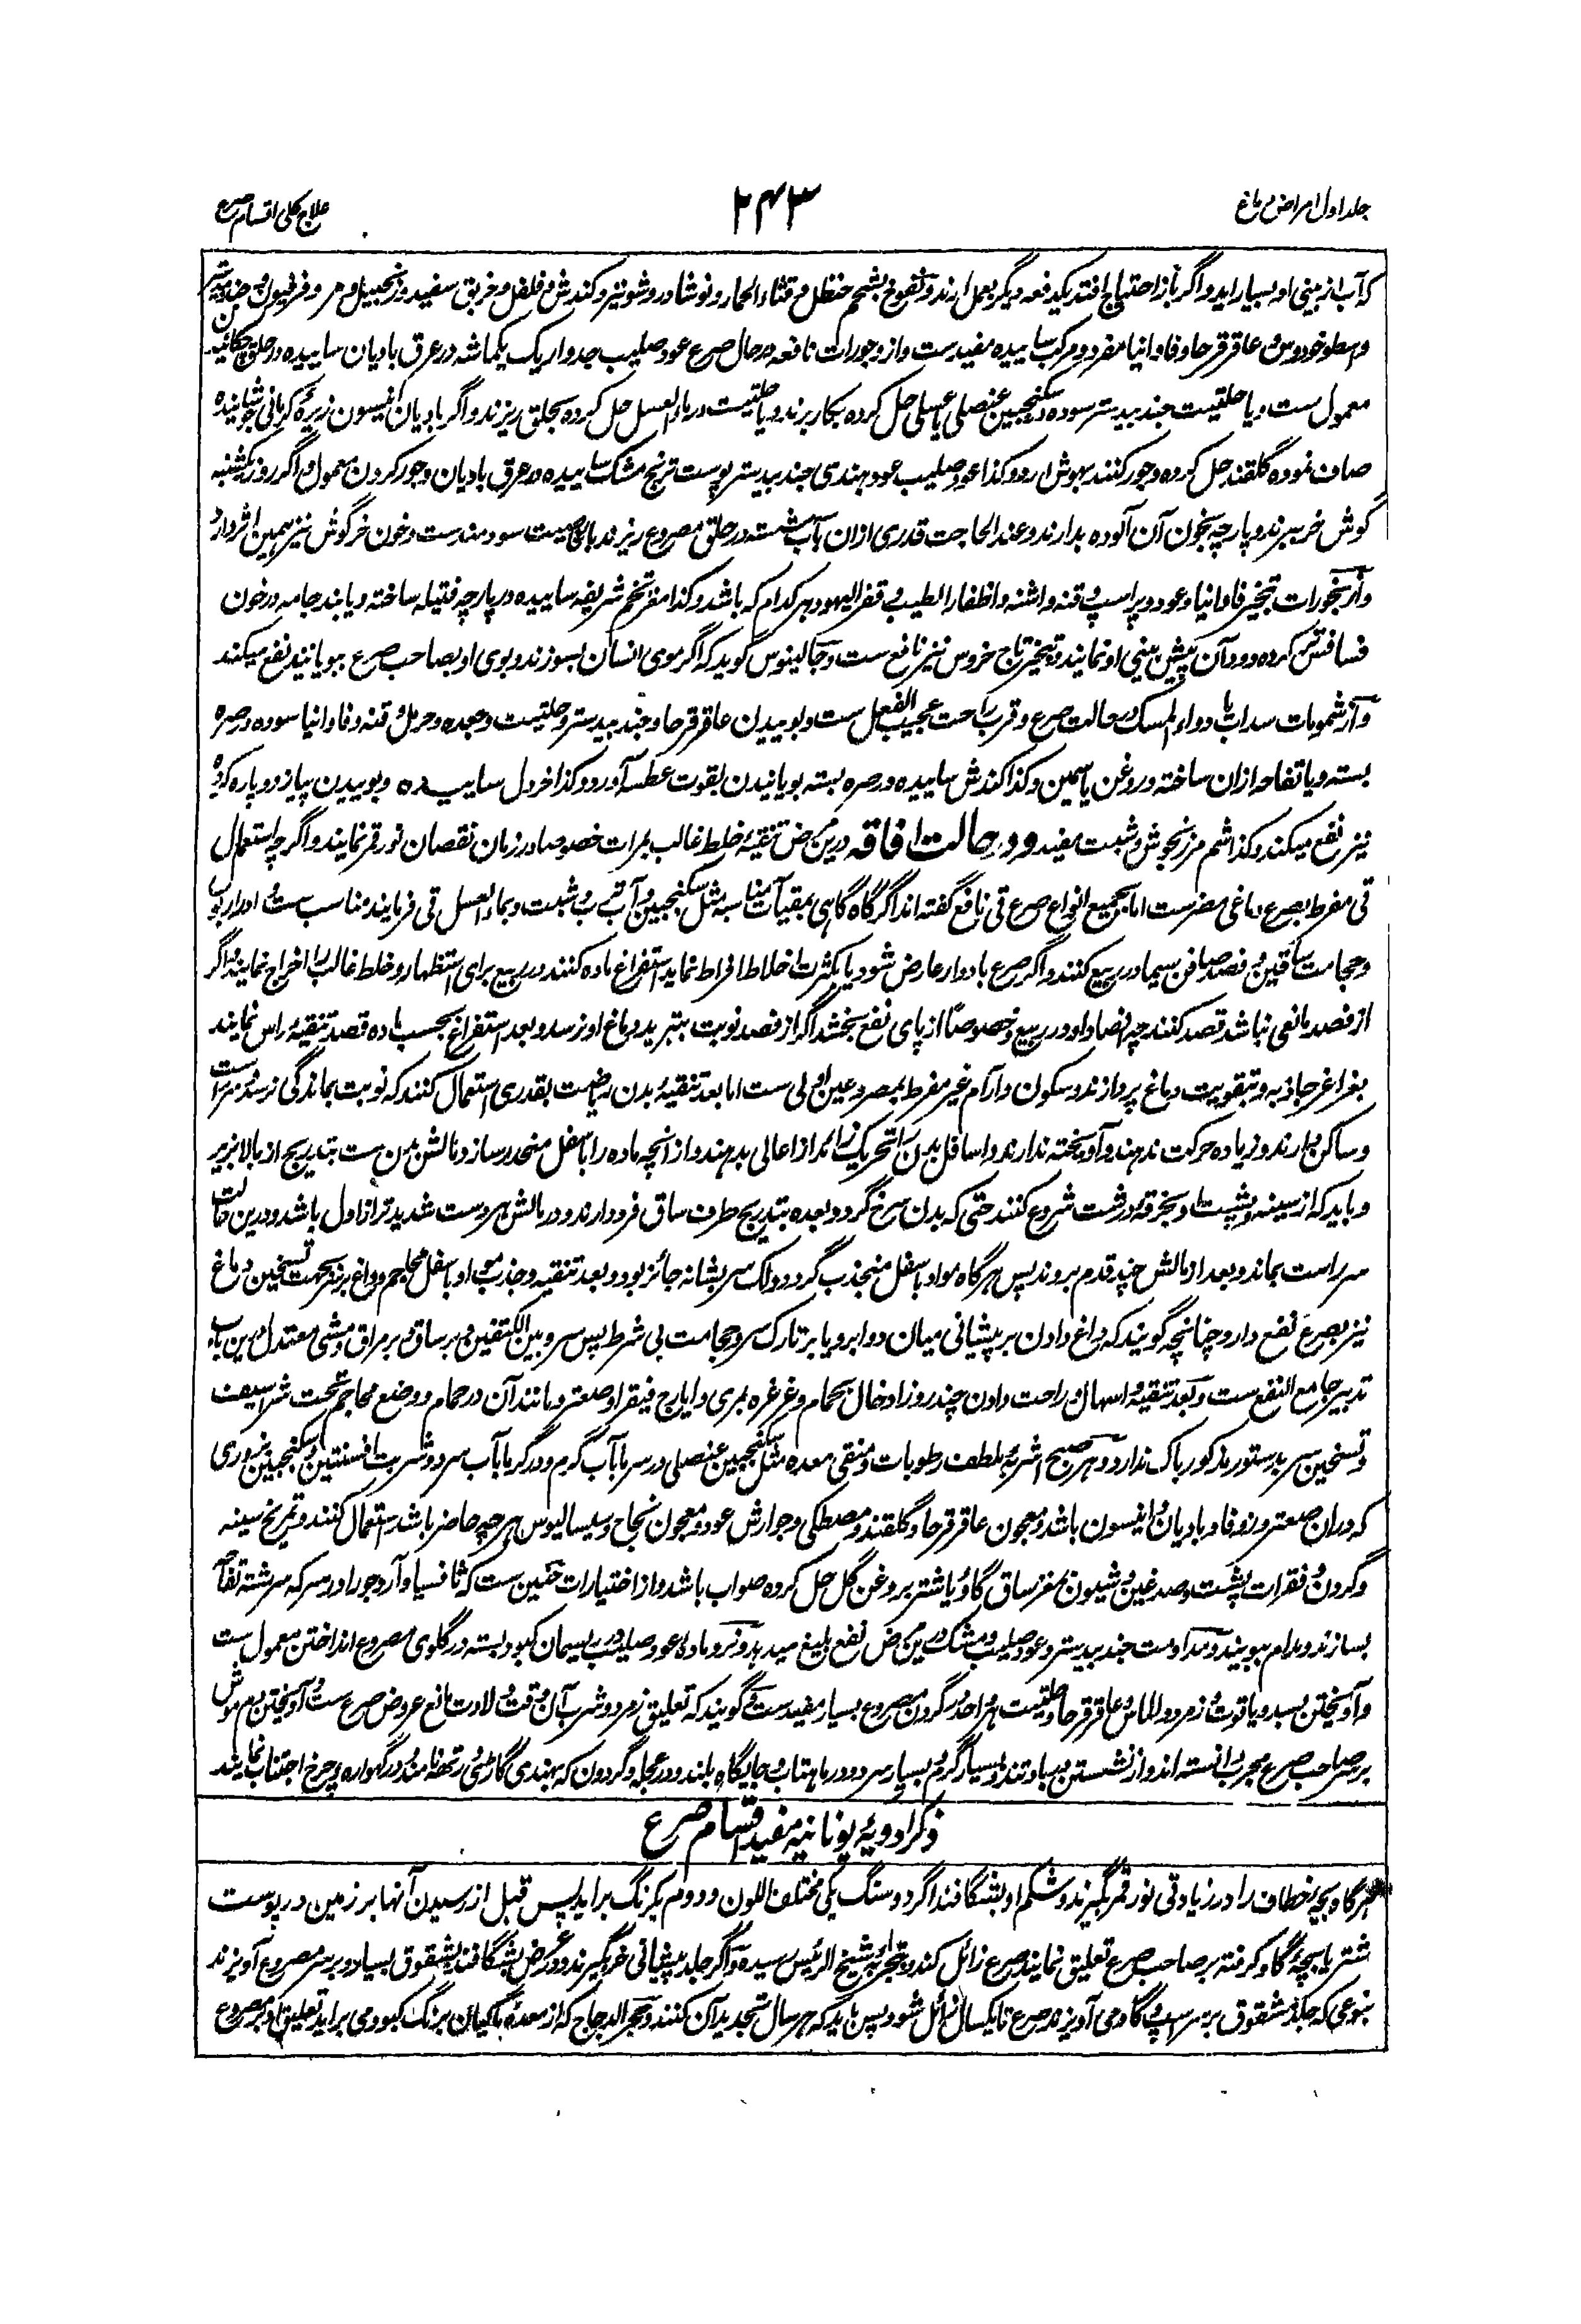 جلد اول امراض دماغ
۲۴۳
علاج کلی اقسام صرع
که آب از بینی او بسیار آید و اگر باز احتیاج افتد یکدفعه دیگر بعمل آرند و نفوخ بشحم حنظل و قثاء الحمار و نوشادر و شونیز و کندش و فلفل و خربق سفید و زنجبیل و مر و فرفیون و جندبیدستر
و اسطوخودوس و عاقرقرحا و فاوانیا مفرد و مرکب ساییده مفیدست و از وجورات نافعه در حال صرع عود صلیب جدوار یک یکماشه در عرق بادیان ساییده در حلق چکانیدن
معمول ست و یا حلتیت جندبیدستر سوده در سکنجبین عنصلی یا عسلی حل کرده بکار برند و یا حلتیت در ماء العسل حل کرده بحلق ریزند و اگر بادیان انیسون زیره کرمانی جوشانیده
صاف نموده گلقند حل کرده وجور کنند بهوش آرد و کذا عود صلیب عود هندی جندبیدستر پوست ترنج مشک ساییده در عرق بادیان وجور کردن معمول و اگر روز یکشنبه
گوش خر ببرند و پارچه بخون آن آلوده بدارند و عند الحاجت قدری ازان بآب شسته در حلق مصروع ریزند بالخاصیت سودمندست و خون خرگوش نیز همین اثر دارد
و از بخورات تبخیر فاوانیا و عود و پر اسپ و قنه و اشنه و اظفار الطیب و قفر الیهود هر کدام که باشد و کذا مغز تخم شریفه ساییده در پارچه فتیله ساخته و یا بند جامه در خون
فسافس تر کرده دود آن پیش بینی او نمایند و تبخیر تاج خروس نیز نافع ست و جالینوس گوید که اگر موی انسان بسوزند و بوی او بصاحب صرع ببویانند نفع میکند
و از شمومات سداب یا دواء المسک در حالت صرع و قرب راحت عجیب الفعل ست و بوییدن عاقرقرحا و جندبیدستر و حلتیت و جعده و حرمل و قنه و فاوانیا سوده در صره
بسته و یا تفاحه ازان ساخته و روغن یاسمین و کذا کندش ساییده در صره بسته بویانیدن بقوت عطسه آورد و کذا خردل ساییده و بوییدن پیاز دو پاره کرده
نیز نفع میکند و کذا شم مرزنجوش و شبت مفید و در حالت افاقه درین مرض تنقیه خلط غالب بمرات خصوصا در زمان نقصان نور قمر نمایند و اگرچه استعمال
قی مفرط بصرع دماغی مضرست اما بجمیع انواع صرع قی نافع گفته اند اگر گاه گاهی بمقیآت مناسبه مثل سکنجبین و آب ترب و شبت و بماء العسل قی فرمایند مناسب ست و ادرار بول
و حجامت ساقین و فصد صافن سیما در ربیع کنند و اگر صرع بادوار عارض شود یا بکثرت اخلاط افراط نماید استفراغ ماده کنند در ربیع برای استظهار و خلط غالب را اخراج نمایند و اگر
از فصد مانعی نباشد قصد کنند چه فصاد او در ربیع و خصوصا از پای نفع بخشد اگر از فصد نوبت بتبرید دماغ او نرسد و بعد استفراغ بحسب ماده قصد تنقیه راس نمایند
بغراغر جاذبه و بتقویت دماغ پردازند و سکون و آرام غیر مفرط بمصروعین اولی ست اما بعد تنقیه بدن ریاضت بقدری استعمال کنند که نوبت بماندگی نرسد و سر راست
و ساکن دارند و زیاده حرکت ندهند و آویخته ندارند و اسافل بدن را تحریک زائد از اعالی بدهند و از آنچه ماده را باسفل منحدر سازد مالش بدن ست بتدریج از بالا بزیر
و باید که از سینه و پشت او بخرقه درشت شروع کنند حتی که بدن سرخ گردد و بعده بتدریج طرف ساق فرود آرند و در مالش هر دست شدیدتر از اول باشد و درین حالت
سر راست بماند و بعد از مالش چند قدم بروند پس هرگاه مواد باسفل منجذب گردد دلک سر بشانه جائز بود و بعد تنقیه و جذب مواد باسفل محاجم و داغ بر سر بجهت تسخین دماغ
نیز بصرع نفع دارد چنانچه گویند که داغ دادن بر پیشانی میان دو ابرو یا بر تارک سر و حجامت بی شرط پس سر و بین الکتفین و بر ساق و بر مراق و مشی معتدل درین باب
تدبیر جامع النفع ست و بعد تنقیه و اسهال و راحت دادن چند روز ادخال بحمام و غرغره بمری و ایارج فیقرا و صعتر و مانند آن در حمام و وضع محاجم تحت شراسیف
و تسخین سر بدستور مذکور باک ندارد و هر صبح اشربه ملطف رطوبات و منقی معده مثل سکنجبین عنصلی در سرما بآب گرم و در گرما بآب سرد و شربت افسنتین و سکنجبین بزوری
که دران صعتر و زوفا و بادیان و انیسون باشد و معجون عاقرقرحا و گلقند و مصطکی و جوارش عود و معجون نجاح و سیسالیوس هرچه حاضر باشد استعمال کنند و تمریخ سینه
و گردن و فقرات پشت و صدغین و شیون بمغز ساق گاو یا شتر بروغن گل حل کرده صواب باشد و از اختیارات حنین ست که ثافسیا و آرد جو را در سرکه سرشته تفاحه
بسازند و مدام ببویند و مداومت جندبیدستر و عود صلیب و مشک درین مرض نفع بلیغ میدهد و نر و ماده عود صلیب در ریسمان کبود بسته در گلوی مصروع انداختن معمول ست
و آویختن بسد و یاقوت و زمرد و الماس و عاقرقرحا و حلتیت هر واحد در گردن مصروع بسیار مفیدست و گویند که تعلیق زمرد و شرب آن وقت ولادت مانع عروض صرع ست و آویختن دم موش
بر صاحب صرع مجرب دانسته اند و از نشستن بباد تند و بسیار گرم و بسیار سرد و در ماهتاب و جایگاه بلند و در عجله و گردون که بهندی گاڑی و رتهه نامند و در گهواره و چرخ اجتناب نمایند
ذکر ادویه یونانیه مفید اقسام صرع
هرگاه بچه خطاف را در زیادتی نور قمر بگیرند و شکم او بشگافند اگر دو سنگ یکی مختلف اللون و دوم یکرنگ برآید پس قبل از رسیدن آنها بر زمین در پوست
شتر یا بچه گاو گرفته بر صاحب صرع تعلیق نمایند صرع زائل کند و بتجربه شیخ الرئیس رسیده و اگر جلد پیشانی خر بگیرند و در عرض بشگافند بشقوق بسیار و بر سر مصروع آویزند
بنوعی که جلد مشقوق بر سر اسپ و گاو می آویزند صرع تا یکسال زائل شود پس باید که هر سال تجدید آن کنند و حجر الدجاج که از معده ماکیان برنگ کبودمی برآید تعلیق او بمصروع